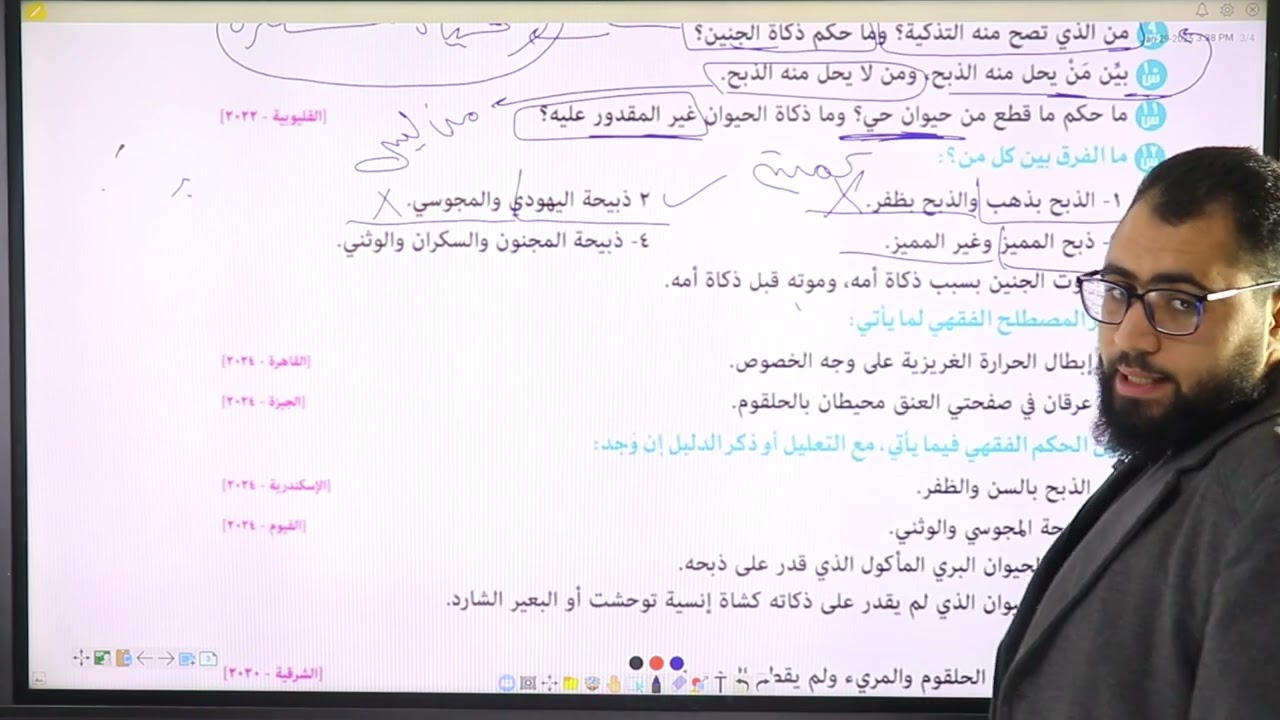 من الذي تصح منه التذكية؟ وما حكم ذكاة الجنين؟
3:38 PM 3/4
س١٠ بيِّن مَنْ يحل منه الذبح، ومن لا يحل منه الذبح.
س١١ ما حكم ما قطع من حيوان حي؟ وما ذكاة الحيوان غير المقدور عليه؟ [القليوبية - ٢٠٢٢]
من ليس
س١٢ ما الفرق بين كل من؟:
١- الذبح بذهب والذبح بظفر. ٢ ذبيحة اليهودي والمجوسي.
- ذبح المميز وغير المميز. ٤- ذبيحة المجنون والسكران والوثني.
وت الجنين بسبب ذكاة أمه، وموته قبل ذكاة أمه.
المصطلح الفقهي لما يأتي:
إبطال الحرارة الغريزية على وجه الخصوص. [القاهرة - ٢٠٢٤]
عرقان في صفحتي العنق محيطان بالحلقوم. [الجيزة - ٢٠٢٤]
الحكم الفقهي فيما يأتي، مع التعليل أو ذكر الدليل إن وُجد:
الذبح بالسن والظفر. [الإسكندرية - ٢٠٢٤]
حة المجوسي والوثني. [الفيوم - ٢٠٢٤]
لحيوان البري المأكول الذي قدر على ذبحه.
يوان الذي لم يقدر على ذكاته كشاة إنسية توحشت أو البعير الشارد.
الحلقوم والمريء ولم يقط [الشرقية - ٢٠٢٠]